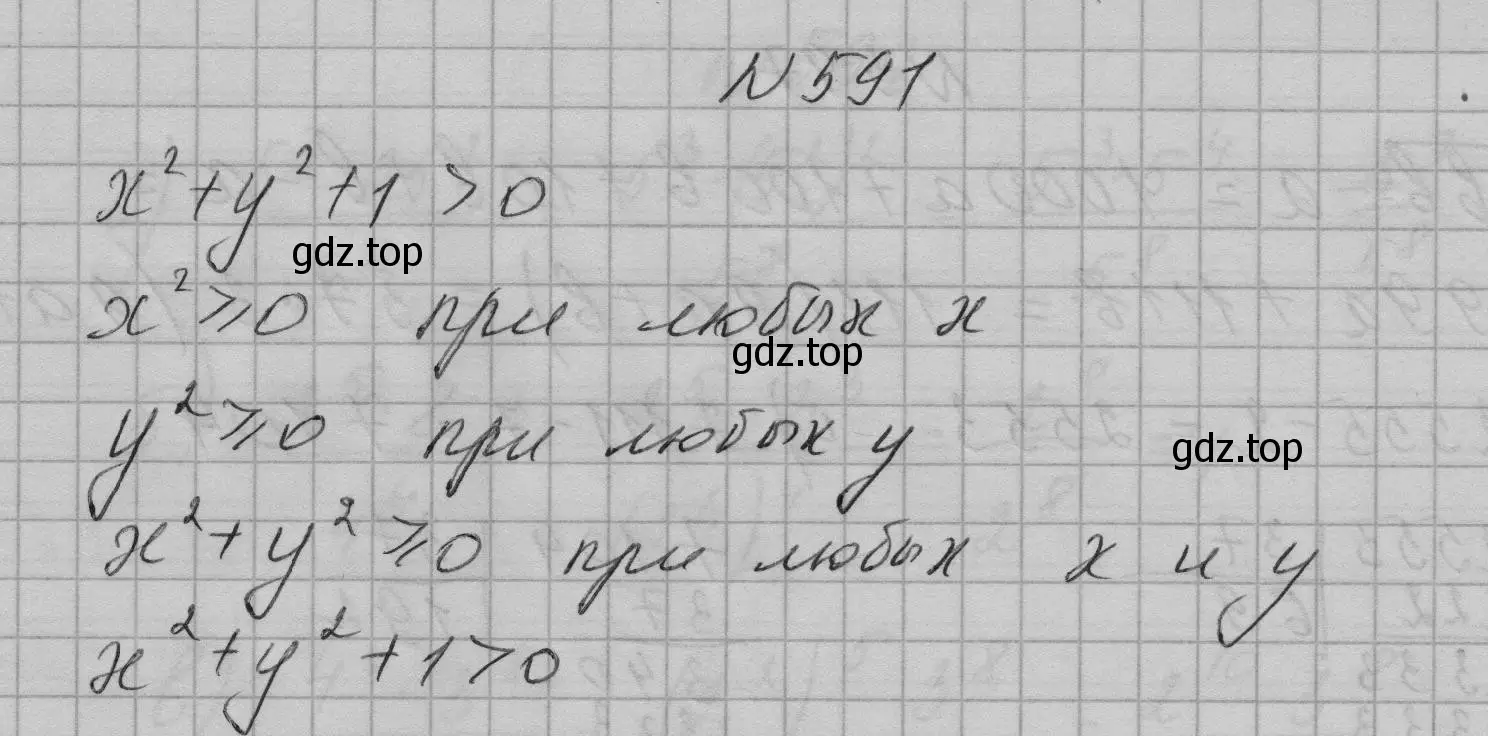 N 591
x² + y² + 1 > 0
gdz.top
x² ⩾ 0 при любых x
gdz.top
y² ⩾ 0 при любых y
gdz.top
x² + y² ⩾ 0 при любых x и y
x² + y² + 1 > 0